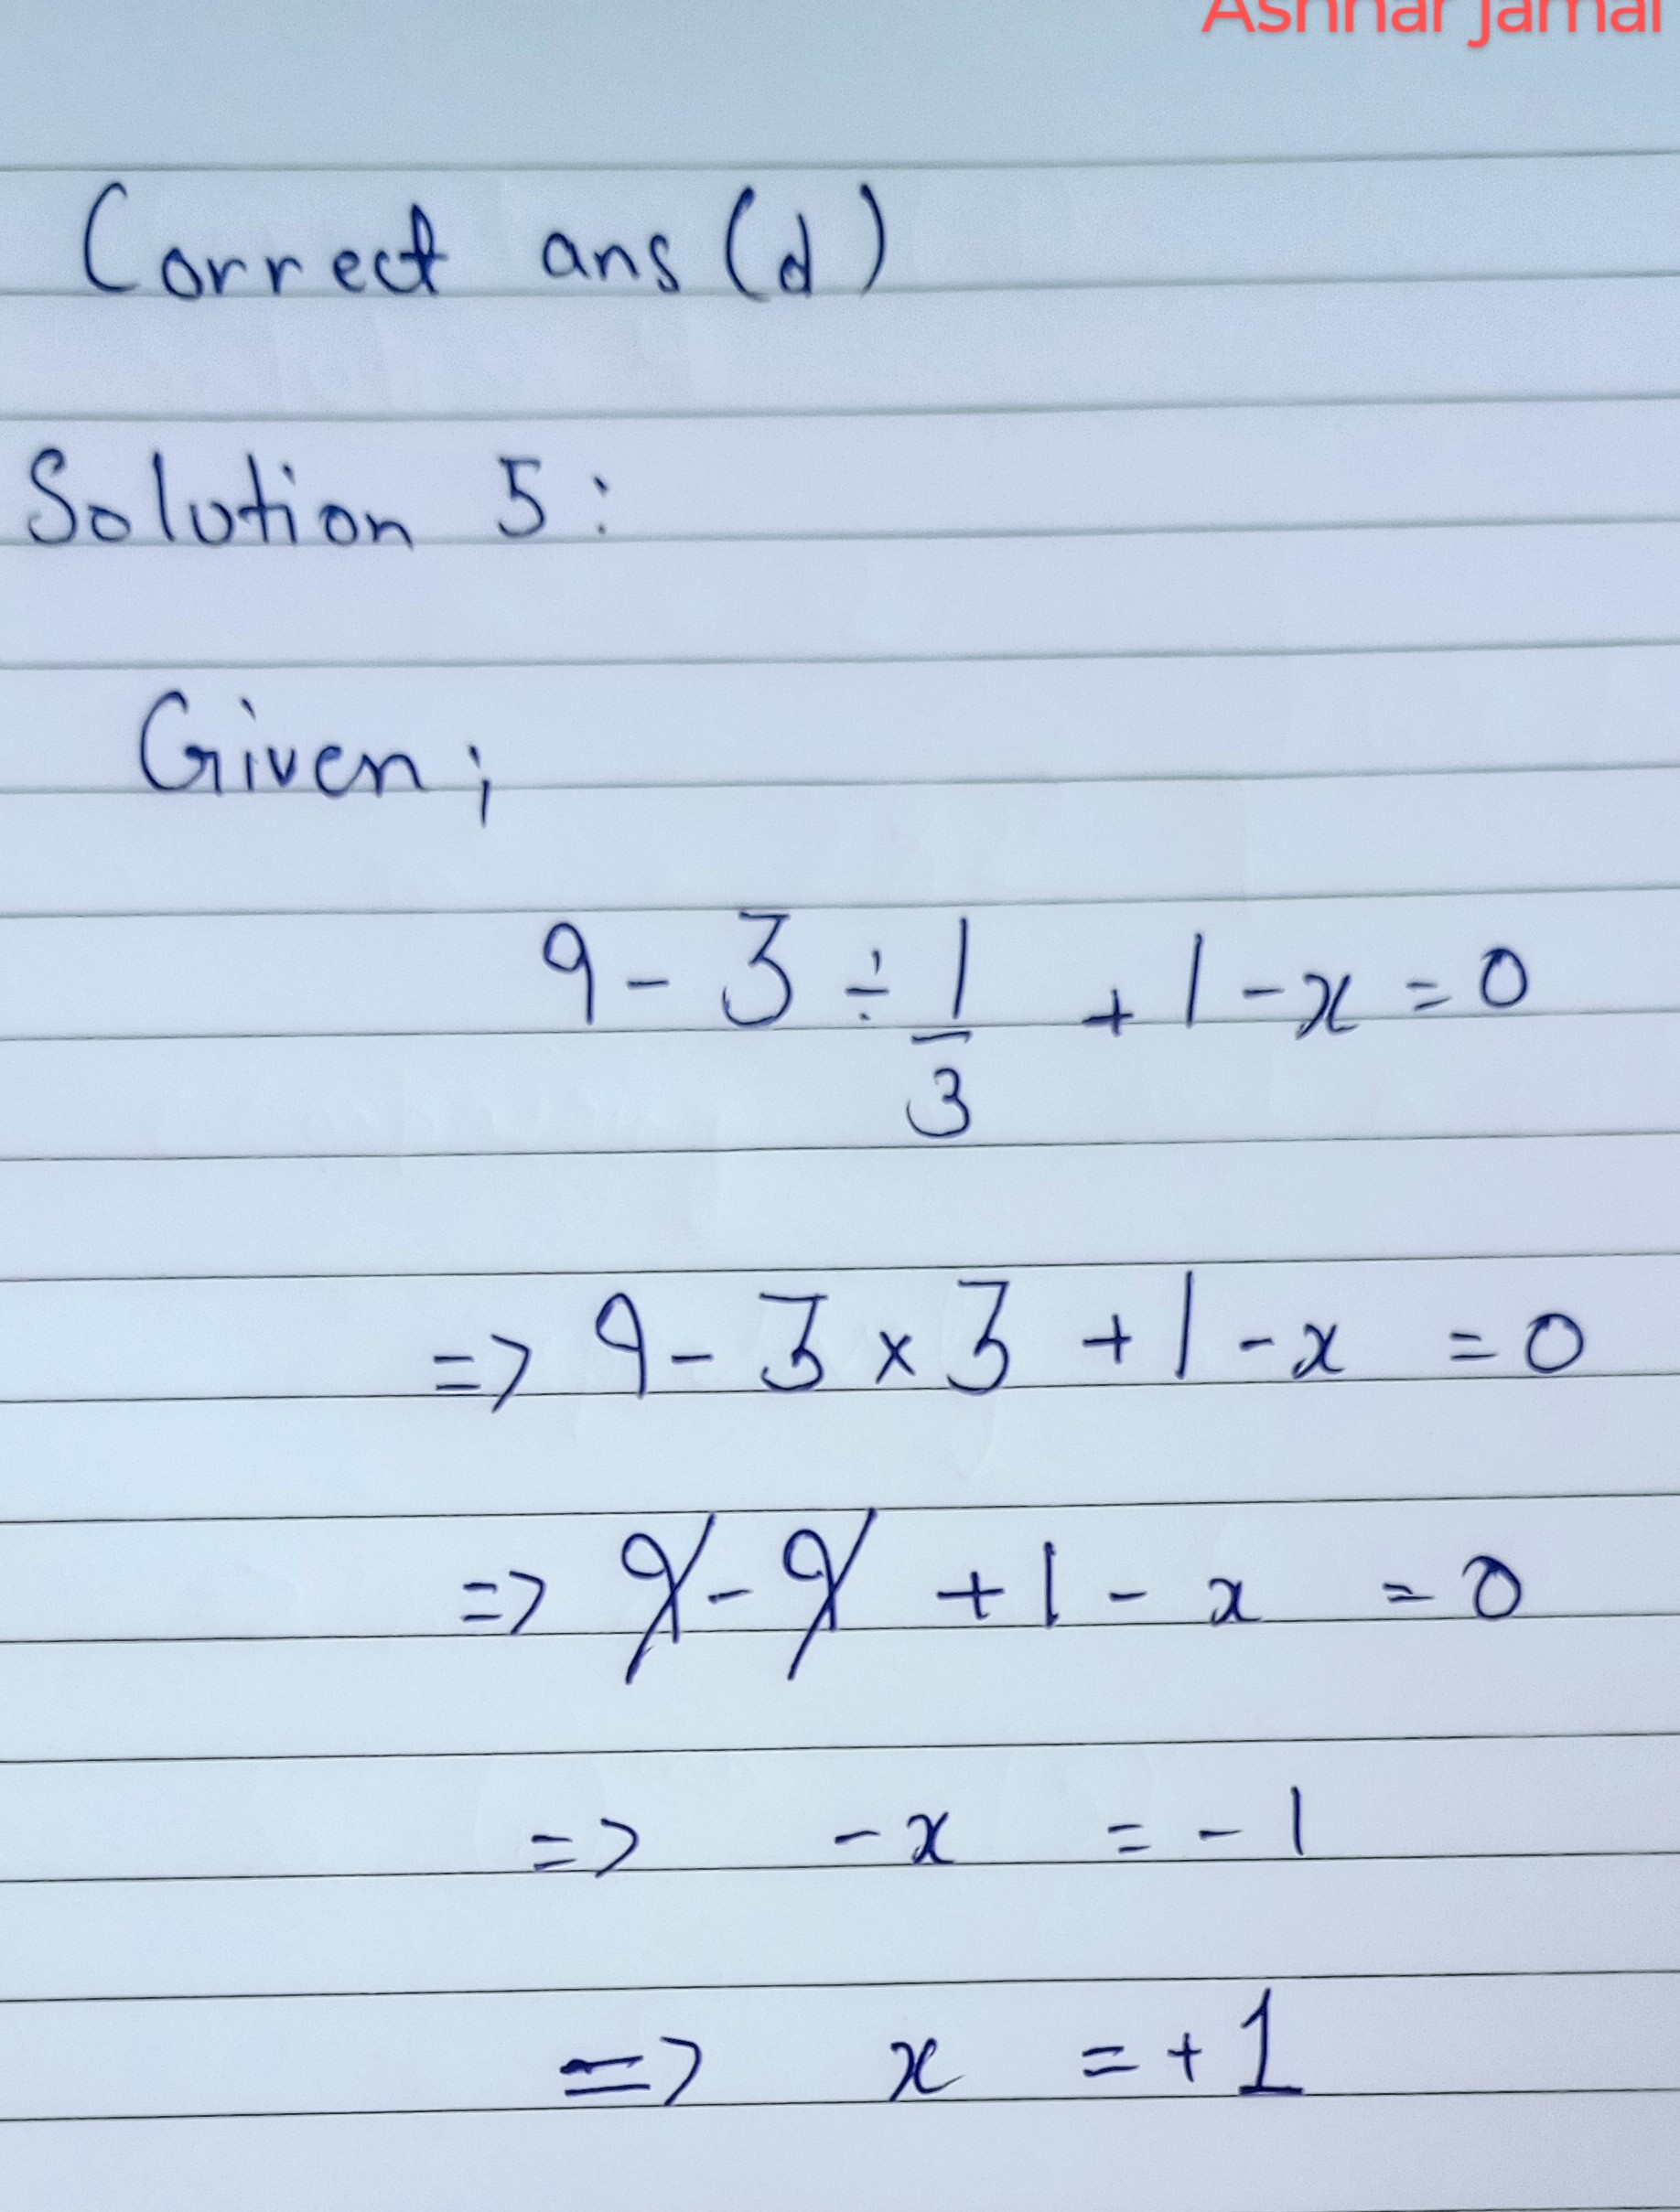 Ashhar Jamal
Correct ans (d)
Solution 5:
Given;
9 - 3 ÷ 1/3 + 1 - x = 0
=> 9 - 3 × 3 + 1 - x = 0
=> 9 - 9 + 1 - x = 0
=> -x = -1
=> x = +1